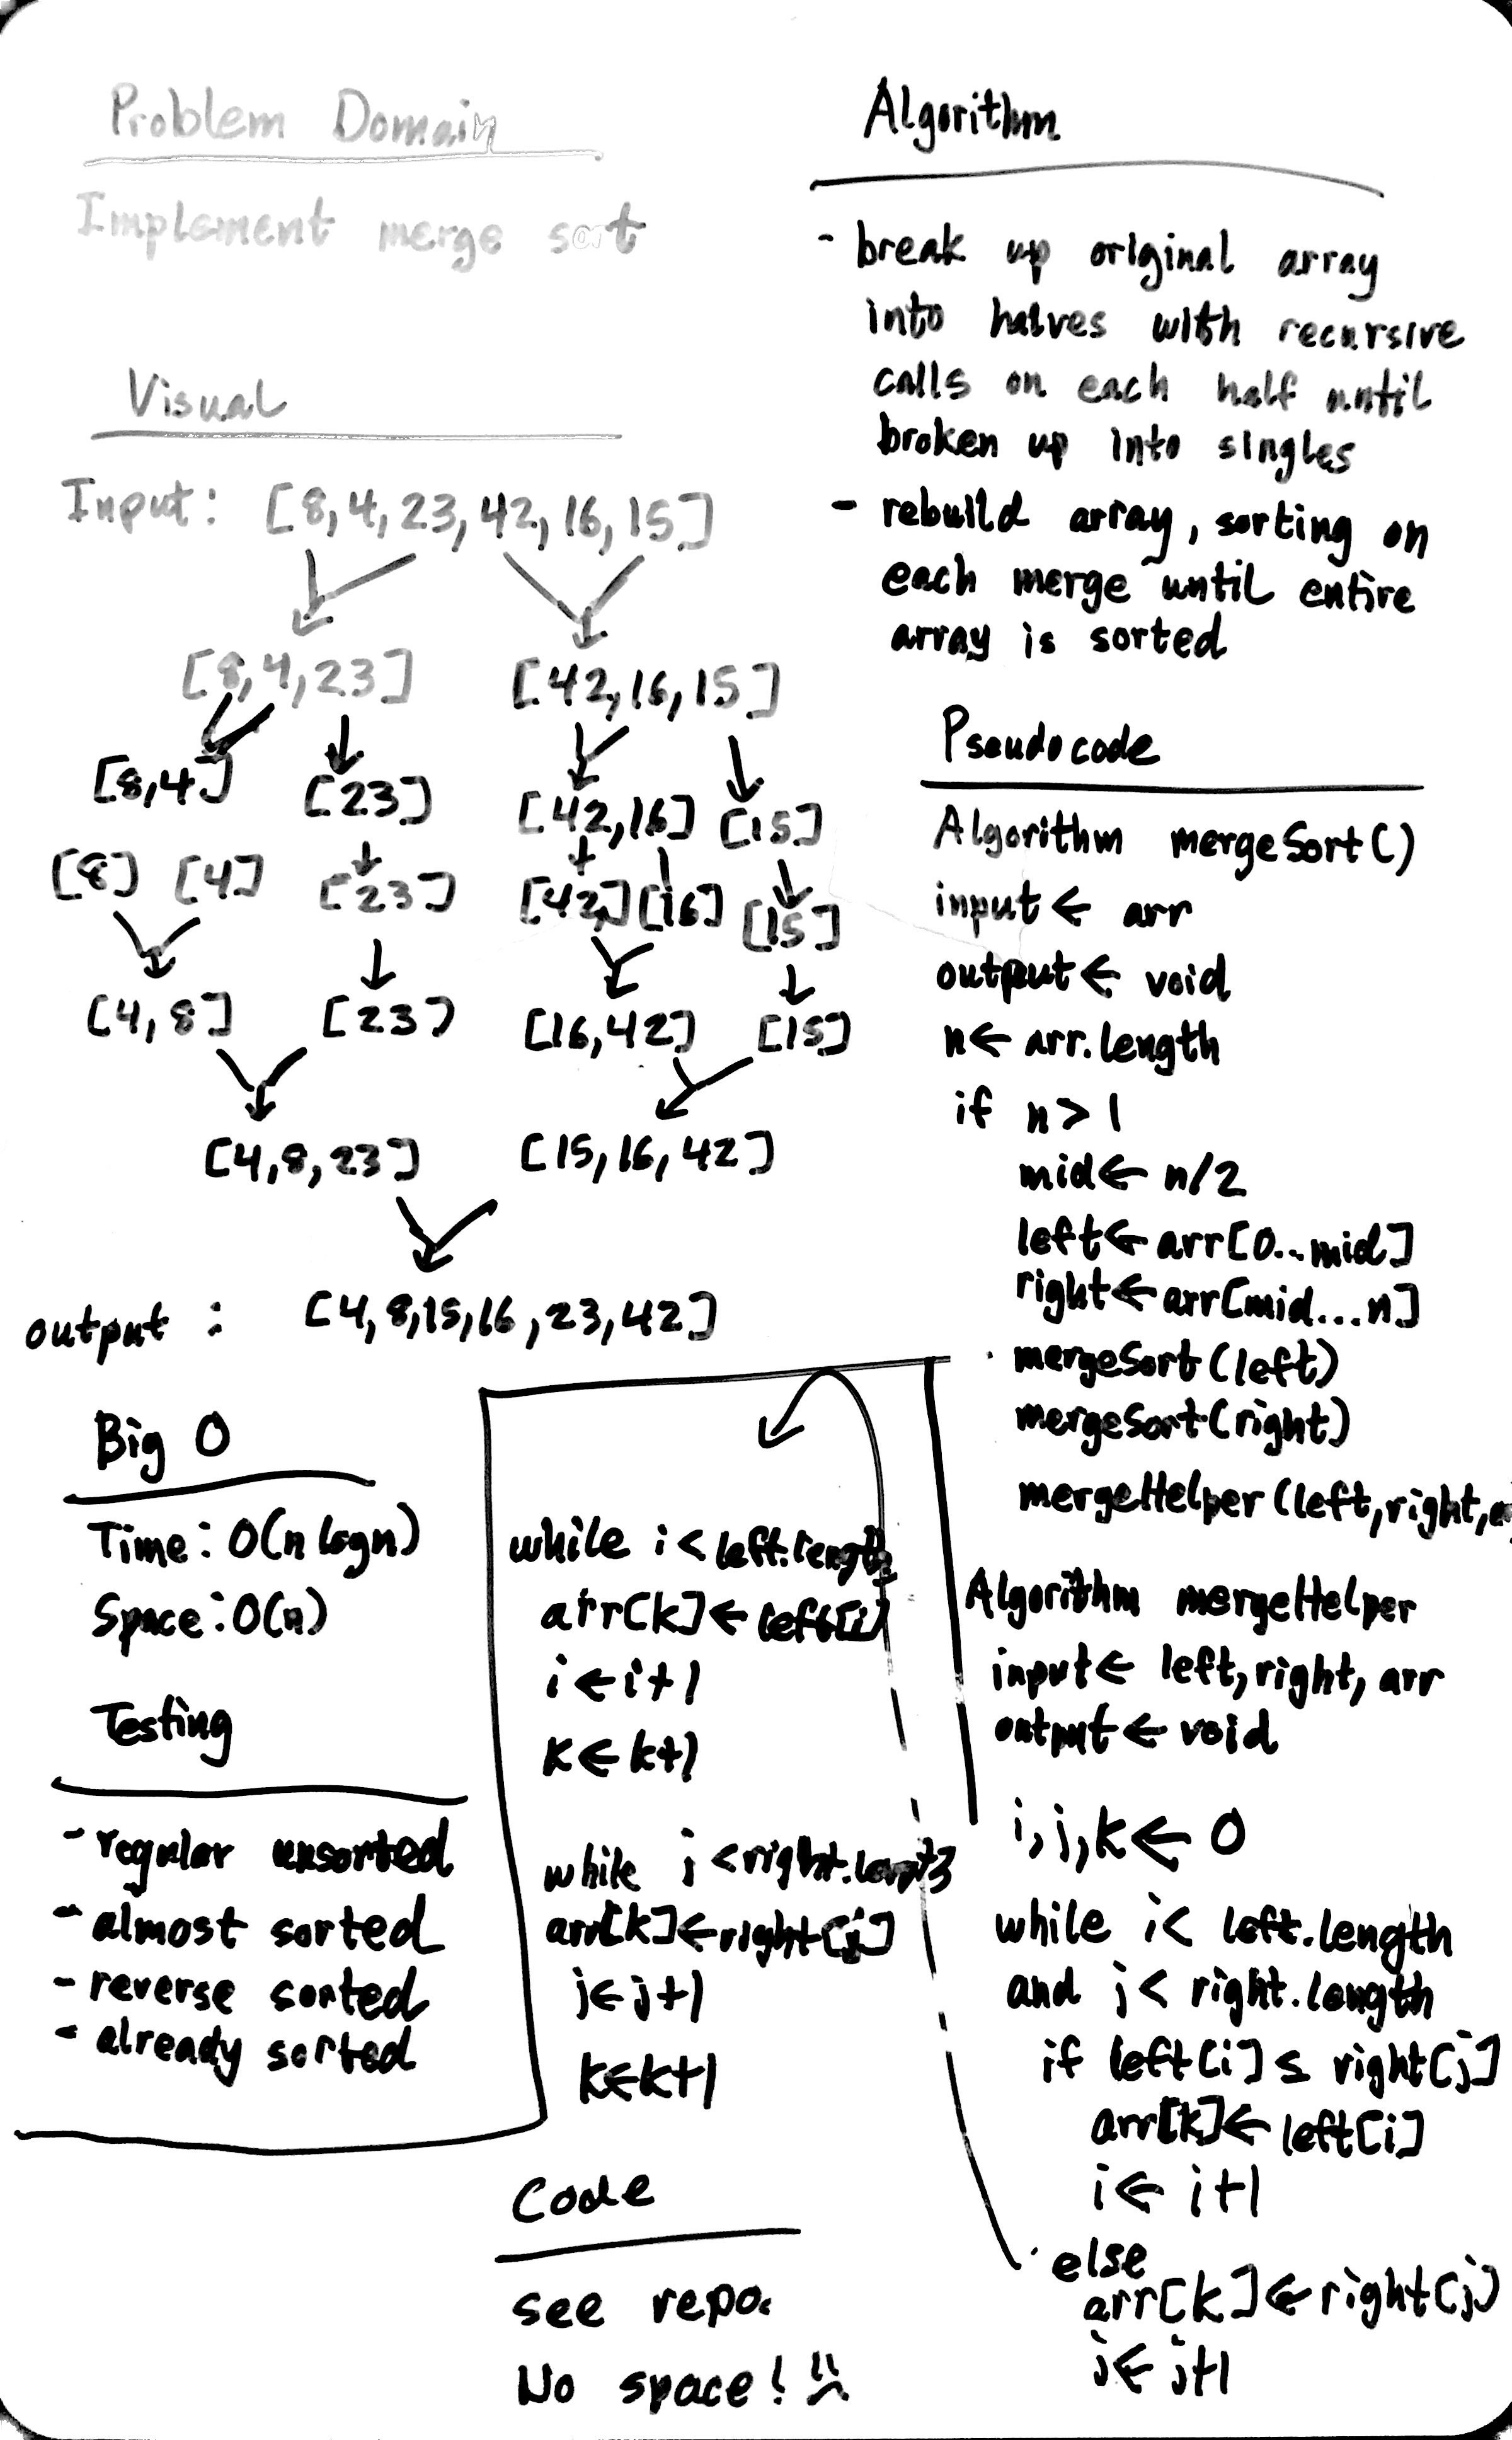 Problem Domain
Implement merge sort
Visual
Input: [8,4,23,42,16,15]
[8,4,23] [42,16,15]
[8,4] [23] [42,16] [15]
[8] [4] [23] [42] [16] [15]
[4,8] [23] [16,42] [15]
[4,8,23] [15,16,42]
output : [4,8,15,16,23,42]
Big O
Time: O(n logn)
Space: O(n)
Testing
- regular unsorted
- almost sorted
- reverse sorted
- already sorted
Algorithm
- break up original array
into halves with recursive
calls on each half until
broken up into singles
- rebuild array, sorting on
each merge until entire
array is sorted
Pseudocode
Algorithm mergeSort()
input ← arr
output ← void
n ← arr.length
if n > 1
mid ← n/2
left ← arr[0...mid]
right ← arr[mid...n]
mergeSort(left)
mergeSort(right)
mergeHelper(left,right,
Algorithm mergeHelper
input ← left, right, arr
output ← void
i,j,k ← 0
while i < left.length
and j < right.length
if left[i] ≤ right[j]
arr[k] ← left[i]
i ← i+1
else
arr[k] ← right[j]
j ← j+1
while i < left.length
arr[k] ← left[i]
i ← i+1
k ← k+1
while j < right.length
arr[k] ← right[j]
j ← j+1
k ← k+1
Code
see repo.
No space!